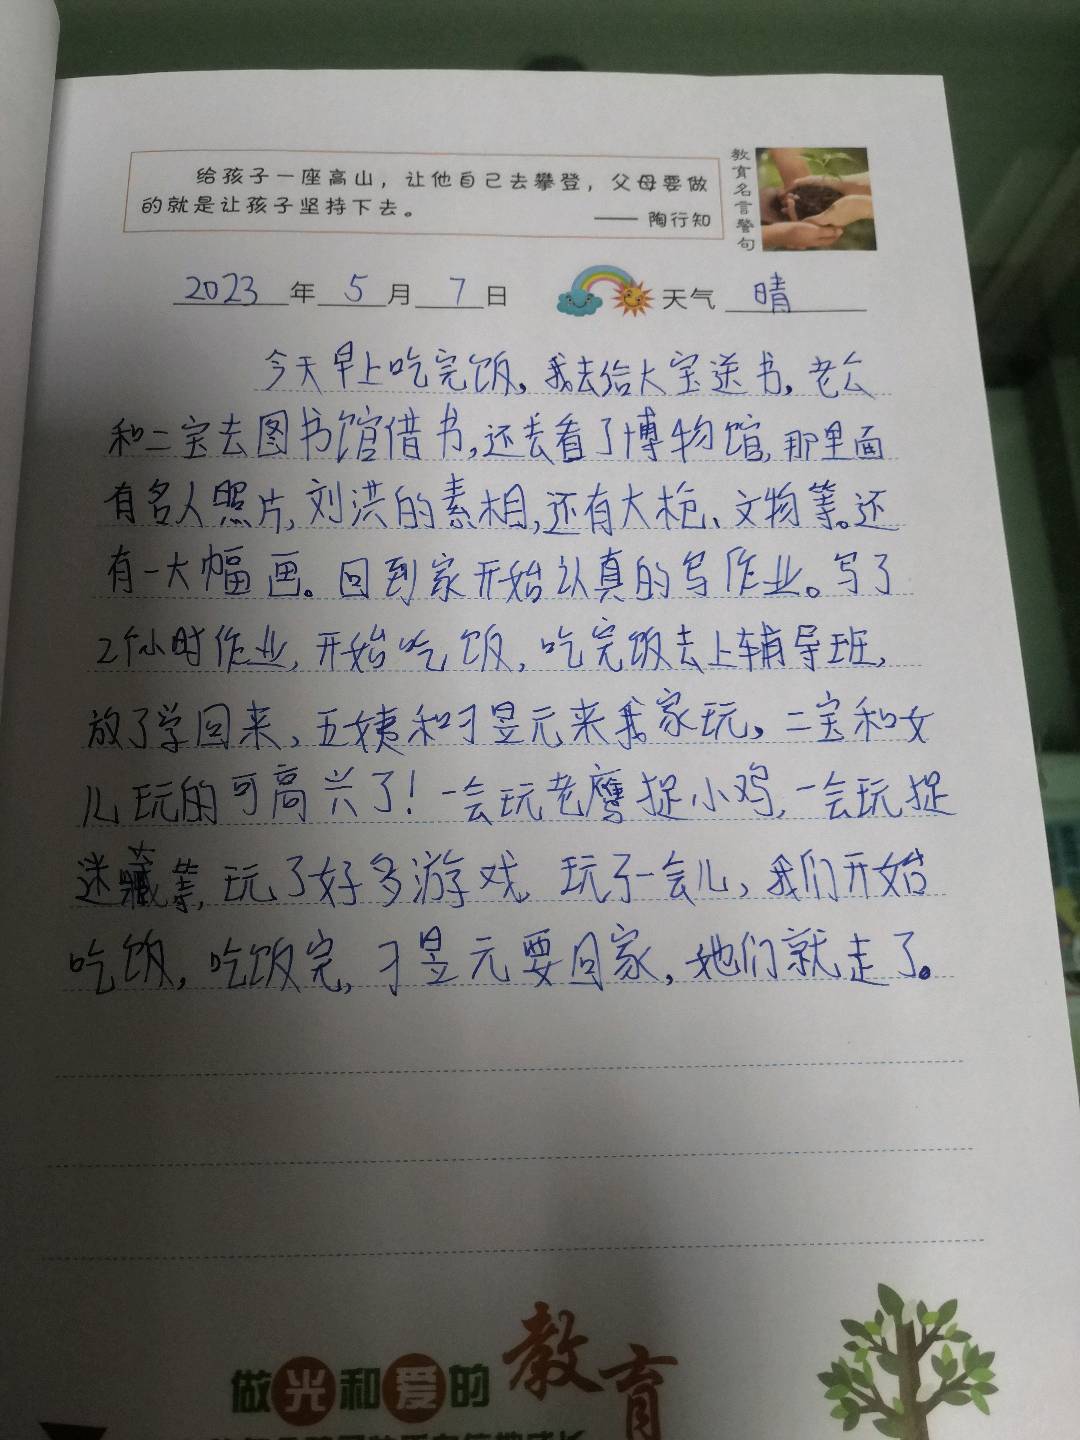 给孩子一座高山，让他自己去攀登，父母要做
的就是让孩子坚持下去。
—— 陶行知
教育名言警句
2023年5月7日 天气 晴
今天早上吃完饭，我去给大宝送书，老公
和二宝去图书馆借书，还去看了博物馆，那里面
有名人照片，刘洪的素相，还有大枪、文物等。还
有一大幅画。回到家开始认真的写作业。写了
2个小时作业，开始吃饭，吃完饭去上辅导班，
放了学回来，五姨和刁昱元来我家玩，二宝和女
儿玩的可高兴了！一会玩老鹰捉小鸡，一会玩捉
迷藏等，玩了好多游戏，玩了一会儿，我们开始
吃饭，吃饭完，刁昱元要回家，她们就走了。
做光和爱的教育